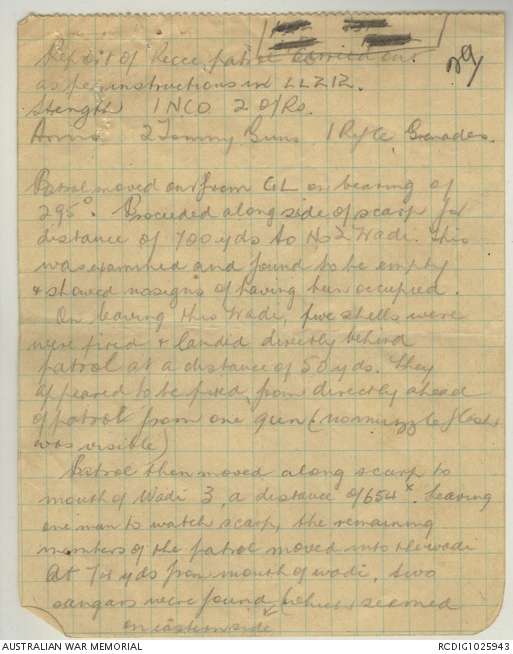 29
Report of Recce patrol carried out.
as per instructions in LLZ12.
Strength 1 NCO 2 O/Rs.
Arms 2 Tommy Guns 1 Rifle Grenades.
Patrol moved out from GL on bearing of
295°. Proceeded along side of scarp for
distance of 700 yds to No 2 Wadi. This
was examined and found to be empty
& showed no signs of having been occupied.
On leaving this Wadi, five shells were
were fired & landed directly behind
patrol at a distance of 50 yds. They
appeared to be fired from directly ahead
of patrol from one gun (no muzzle flash
was visible)
Patrol then moved along scarp to
mouth of Wadi 3, a distance of 654 x. Leaving
one man to watch scarp, the remaining
members of the patrol moved into the wadi
At 74 yds from mouth of wadi, two
sangars were found (which seemed
on eastern side
AUSTRALIAN WAR MEMORIAL
RCDIG1025943